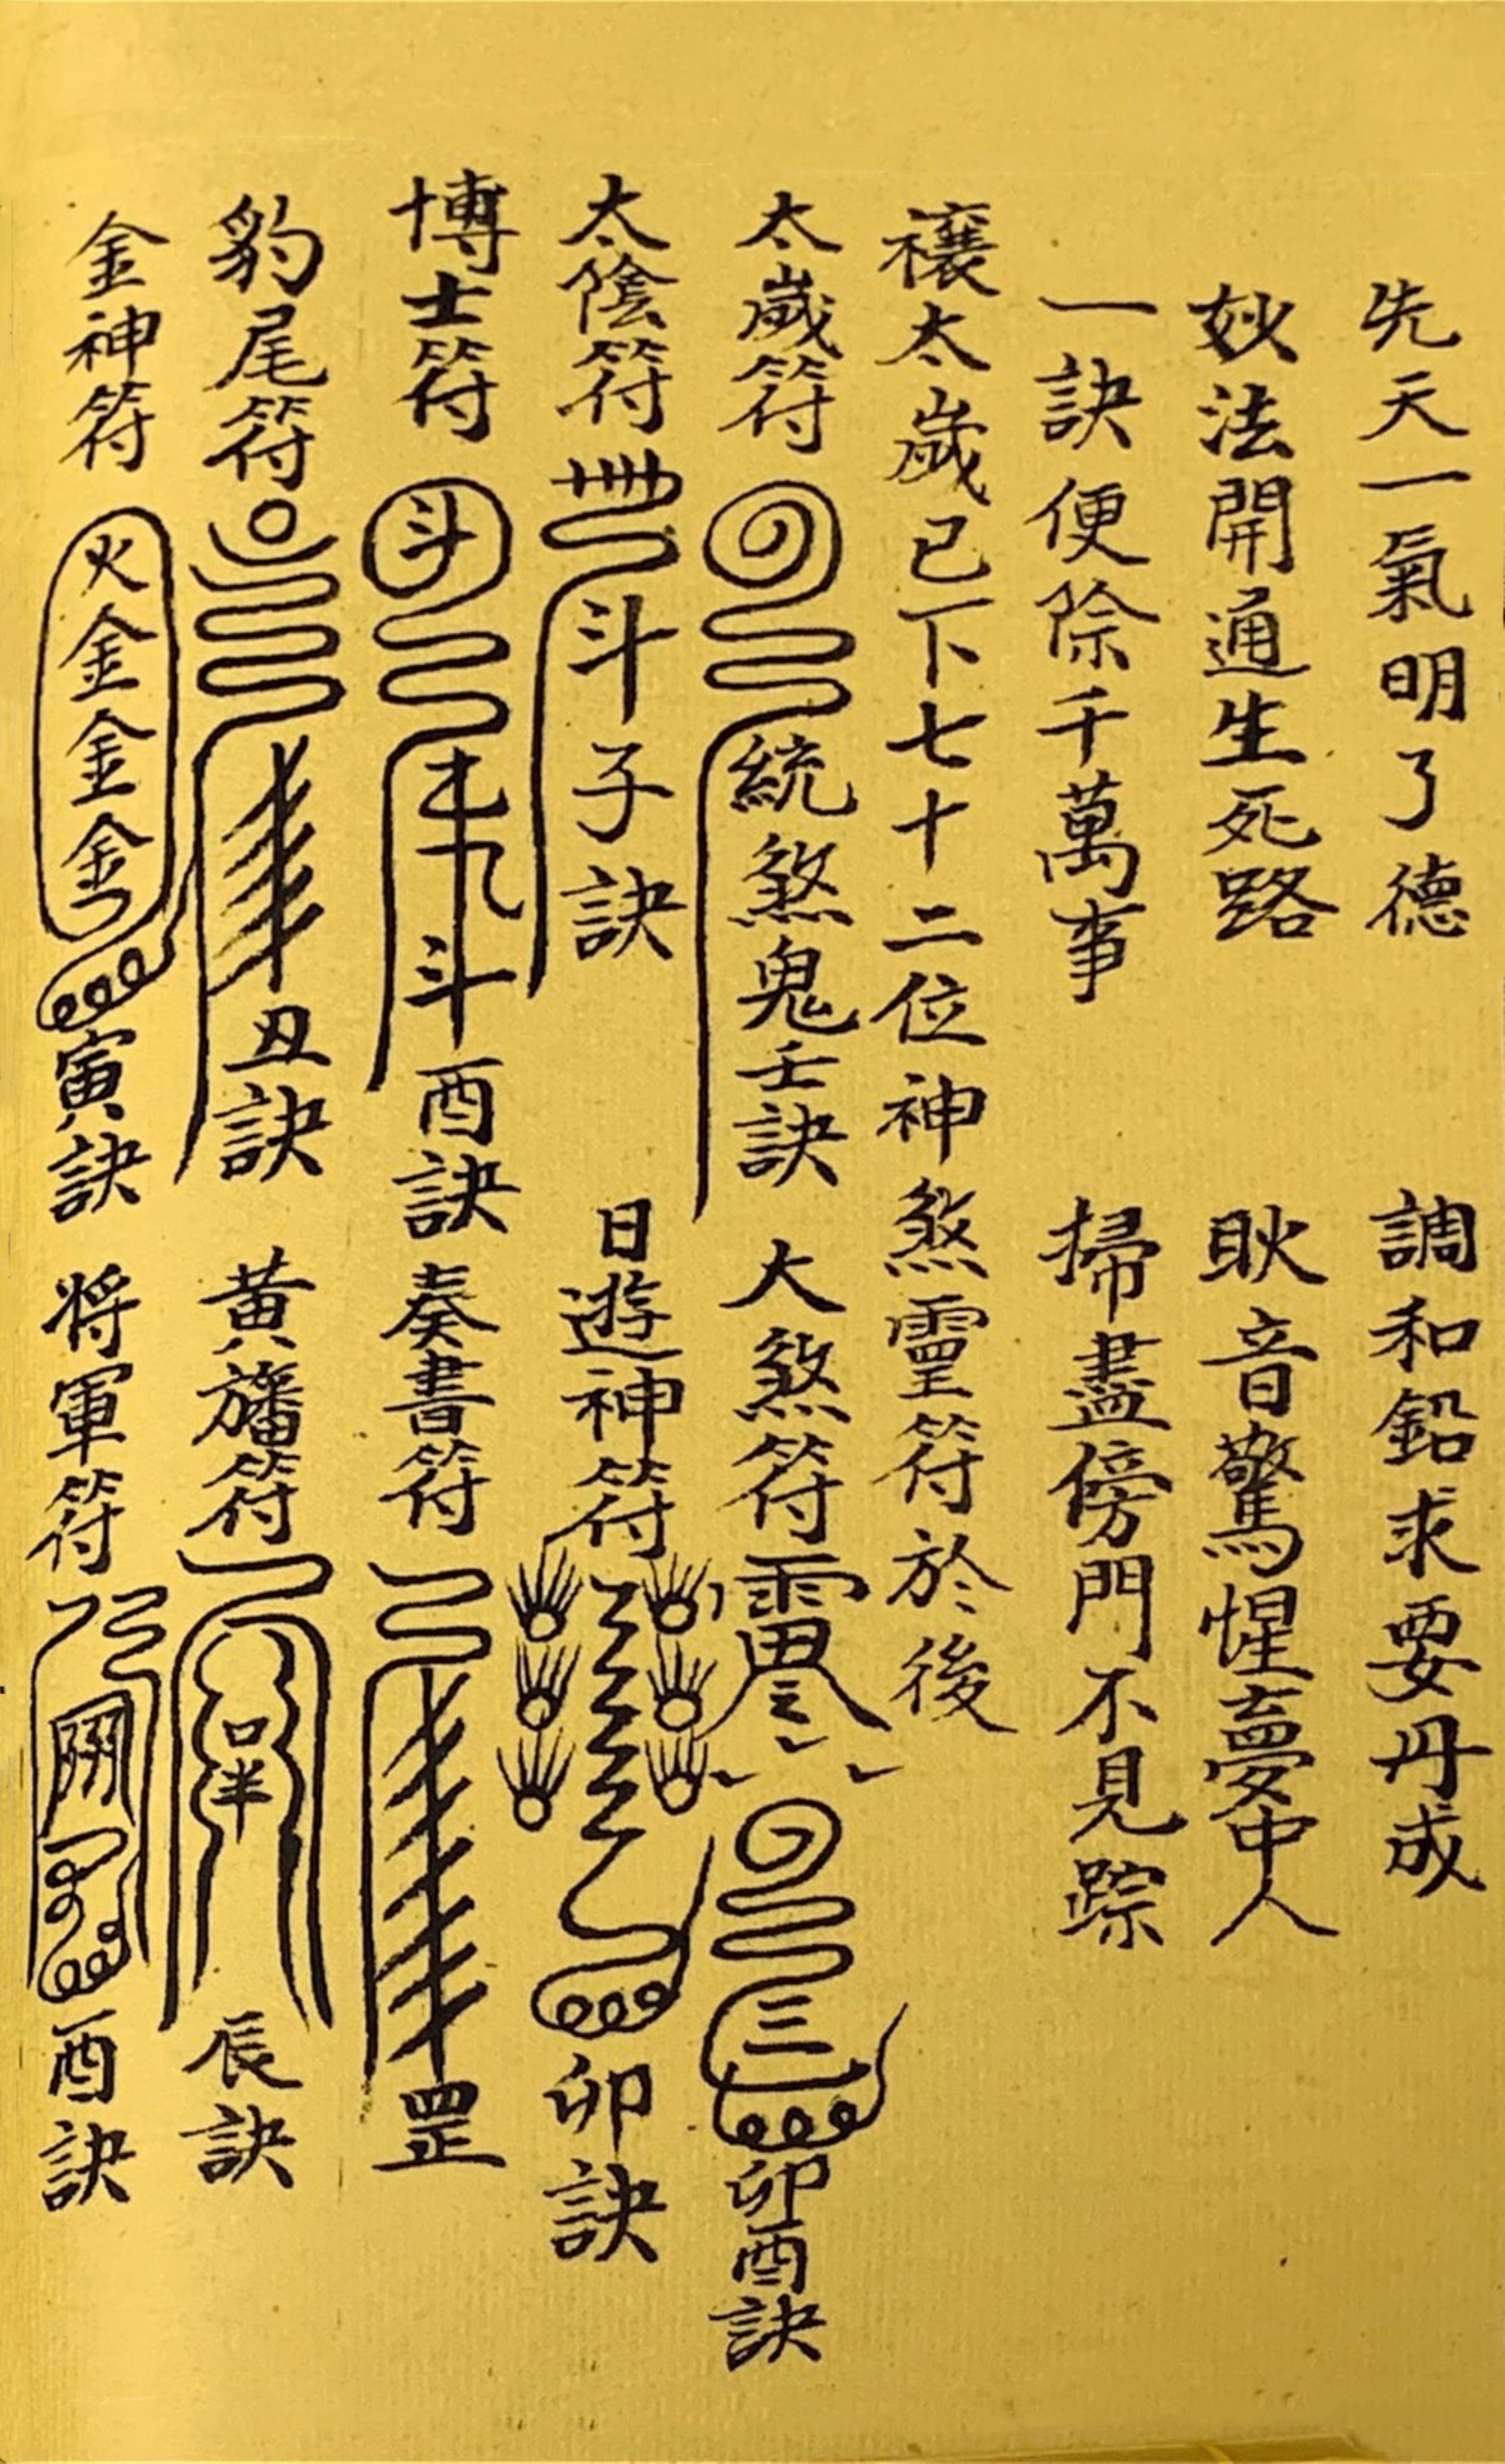 先天一氣明了德 調和鉛求要丹成
妙法開通生死路 耿音驚惺夢中人
一訣便除千萬事 掃盡傍門不見踪
禳太歲已下七十二位神煞靈符於後
太歲符 統煞鬼壬訣 大煞符 三 卯酉訣
太陰符 斗子訣 日遊神符 卯訣
博士符 斗 斗 酉訣 奏書符 罡
豹尾符 丑訣 黃旛符 口羊 辰訣
金神符 火金金金 寅訣 将軍符 酉訣